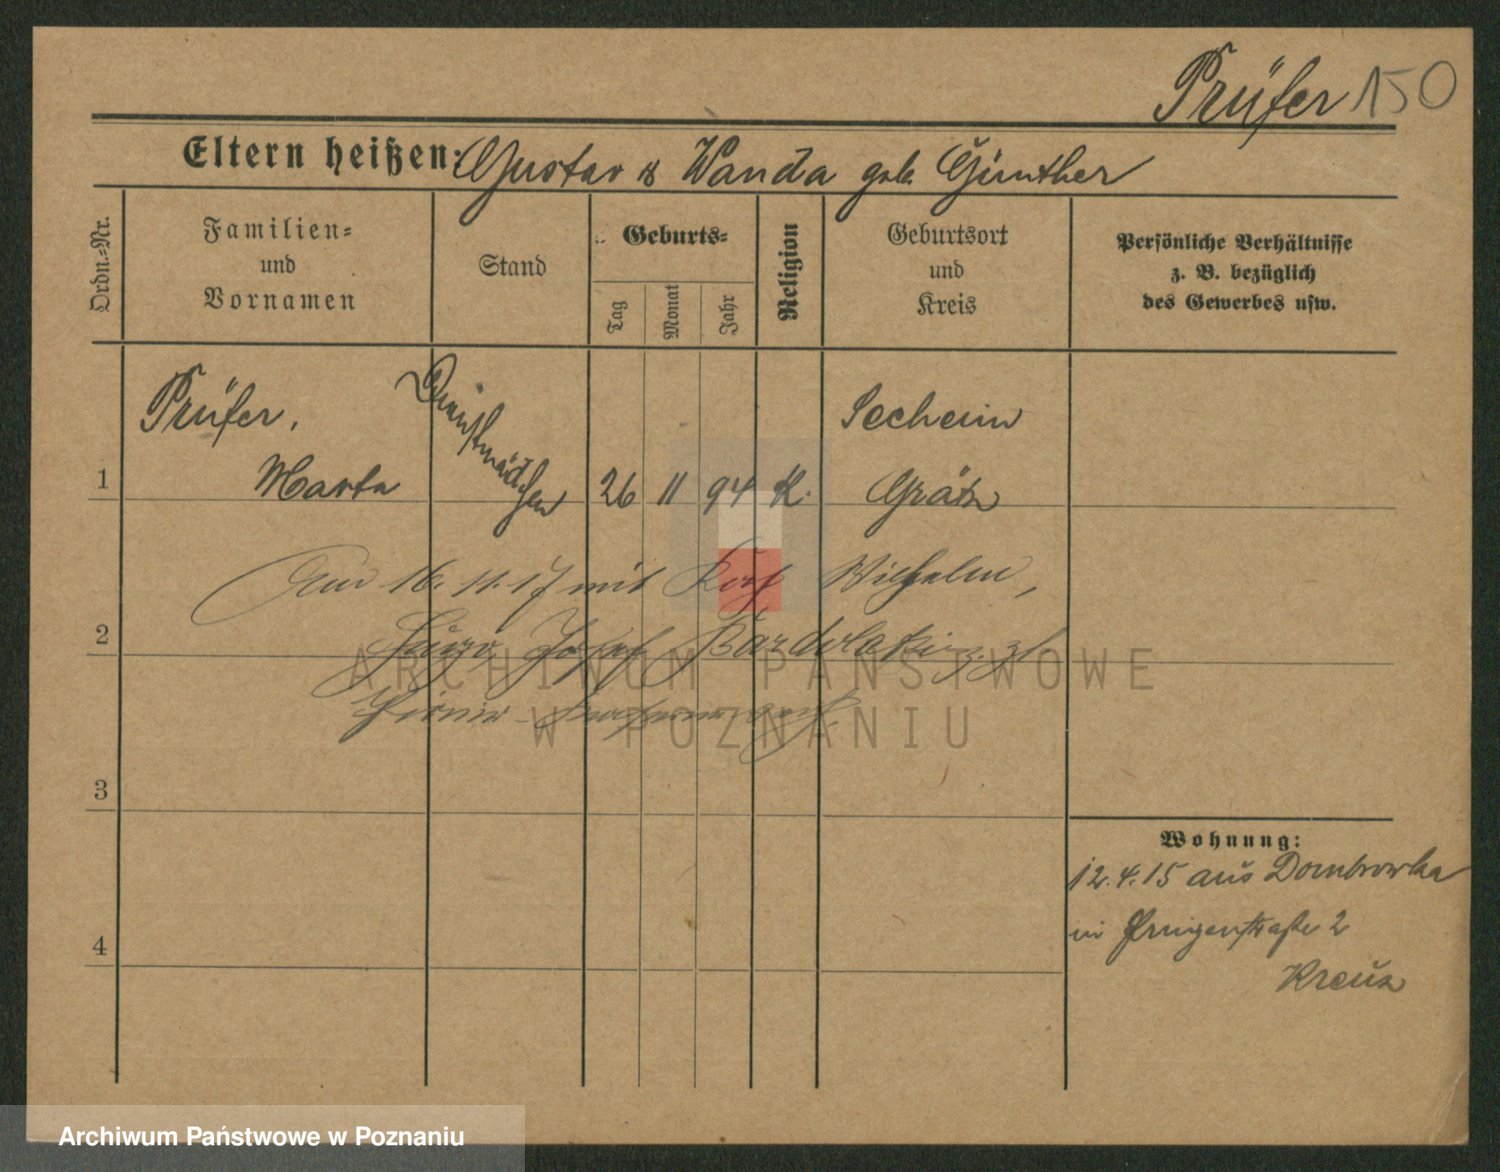 Prüfer 150
Eltern heißen: Gustav & Wanda geb. Günther
Ordn.-Nr.
Familien-
und
Vornamen
Stand
Geburts-
Tag
Monat
Jahr
Religion
Geburtsort
und
Kreis
Persönliche Verhältnisse
z. B. bezüglich
des Gewerbes usw.
Prüfer,
Dienstmädchen
Seeheim
1 Marta 26 11 94 K. Grätz
16. 11. 17 mit Wilhelm,
2 Hugo Josef
3
Wohnung:
12.4.15 aus Dombrowka
in 2
Kreuz
4
ARCHIWUM PAŃSTWOWE
W POZNANIU
Archiwum Państwowe w Poznaniu